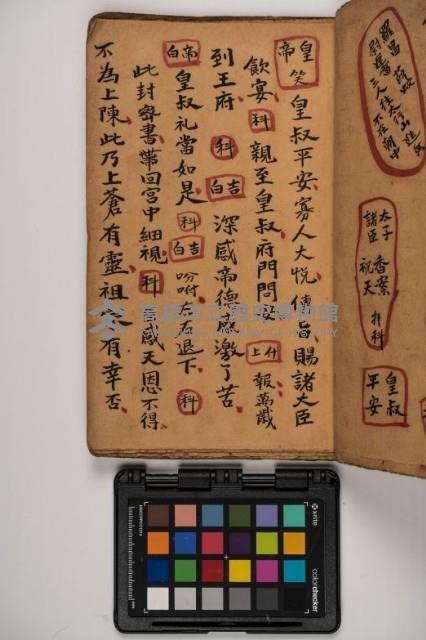 羅昌
三人往太行山進
不在朝中
太子 香案
諸臣 祝天 介科
皇叔
平安
皇帝笑 皇叔平安寡人大悅傳旨賜諸大臣
飲宴 科 親至皇叔府門問 什上 報萬歲
到王府 科 吉白 深感帝德感激了苦
帝白 皇叔礼當如是 科 吉白 吩咐左右退下 科
此封密書帶回宮中細視 科 感天恩不得
不為上陳此乃上蒼有靈祖 有幸否
高雄市立歷史博物館
x-rite
colorchecker